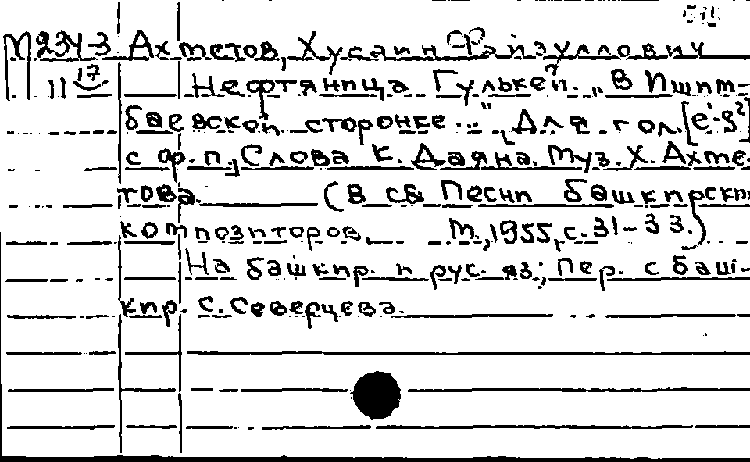 М234-3 Ахметов, Хусаин Файзуллович
11 17 Нефтяница Гулькей. „В Ишим-
баевской сторонке..." Для гол. [e¹-g²]
с ф.п. Слова К. Даяна. Муз. Х. Ахме-
това. (В сб. Песни башкирских
композиторов. М., 1955, с. 31-33.)
На башкир. и рус. яз.; Пер. с баш-
кир. С. Северцева.